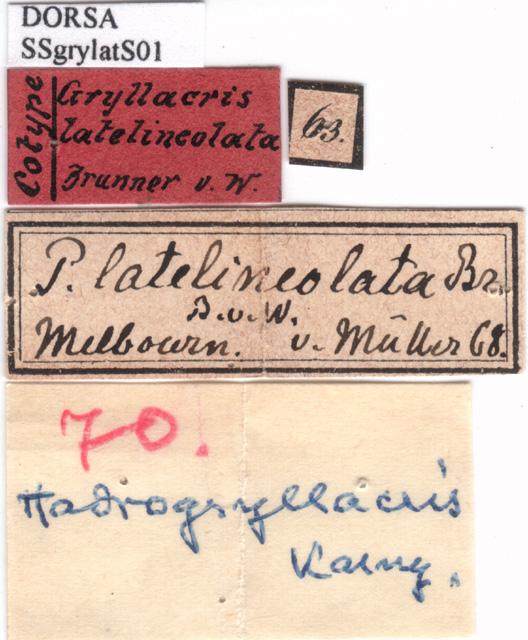 DORSA
SSgrylatS01
Cotype
Gryllacris
latelineolata
Brunner v. W.
63.
P. latelineolata Br.
B. v. W.
Melbourn. v. Müller 68.
70.
Hadrogryllacris
Karny.